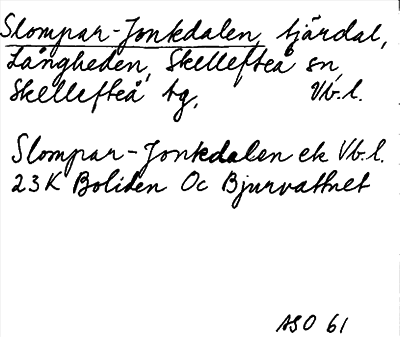 Slompar-Jonkdalen, tjärdal,
Långheden, Skellefteå sn,
Skellefteå tg, Vb.l.
Slompar-Jonkdalen ek Vb.l.
23K Boliden Oc Bjurvattnet
ASO 61